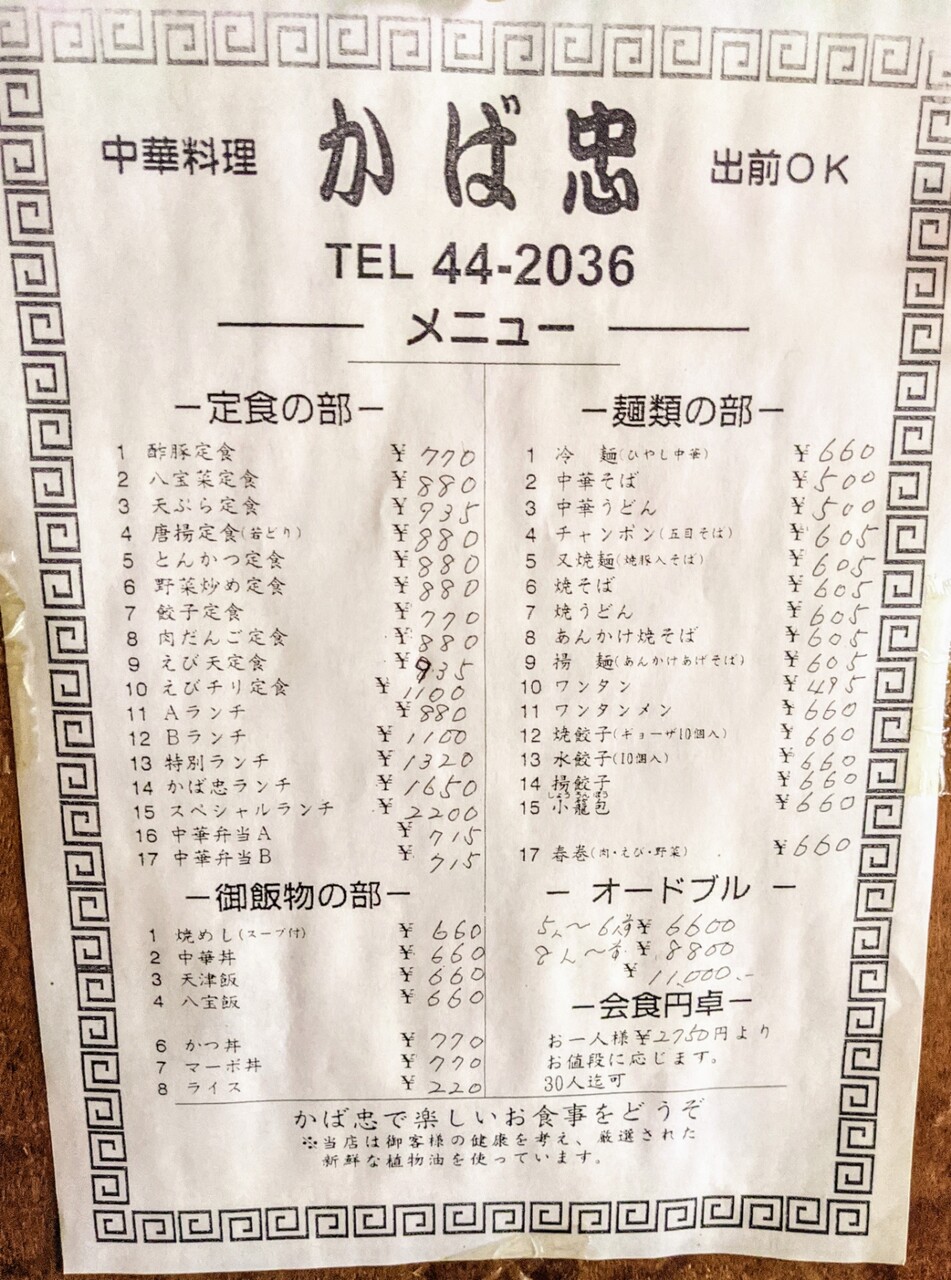 中華料理 かば忠 出前OK
TEL 44-2036
メニュー
-定食の部-
1 酢豚定食 ¥770
2 八宝菜定食 ¥880
3 天ぷら定食 ¥935
4 唐揚定食(若どり) ¥880
5 とんかつ定食 ¥880
6 野菜炒め定食 ¥880
7 餃子定食 ¥770
8 肉だんご定食 ¥880
9 えび天定食 ¥935
10 えびチリ定食 ¥1100
11 Aランチ ¥880
12 Bランチ ¥1100
13 特別ランチ ¥1320
14 かば忠ランチ ¥1650
15 スペシャルランチ ¥2200
16 中華弁当A ¥715
17 中華弁当B ¥715
-御飯物の部-
1 焼めし(スープ付) ¥660
2 中華丼 ¥660
3 天津飯 ¥660
4 八宝飯 ¥660
6 かつ丼 ¥770
7 マーボ丼 ¥770
8 ライス ¥220
-麺類の部-
1 冷 麺(ひやし中華) ¥660
2 中華そば ¥500
3 中華うどん ¥500
4 チャンポン(五目そば) ¥605
5 叉焼麺(焼豚入そば) ¥605
6 焼そば ¥605
7 焼うどん ¥605
8 あんかけ焼そば ¥605
9 揚 麺(あんかけあげそば) ¥605
10 ワンタン ¥495
11 ワンタンメン ¥660
12 焼餃子(ギョーザ10個入) ¥660
13 水餃子(10個入) ¥660
14 揚餃子 ¥660
15 小籠包 ¥660
17 春巻(肉・えび・野菜) ¥660
- オードブル -
5人〜6人前 ¥6600
8人〜 ¥8800
¥11,000.-
-会食円卓-
お一人様¥2750円より
お値段に応じます。
30人迄可
かば忠で楽しいお食事をどうぞ
※当店は御客様の健康を考え、厳選された
新鮮な植物油を使っています。